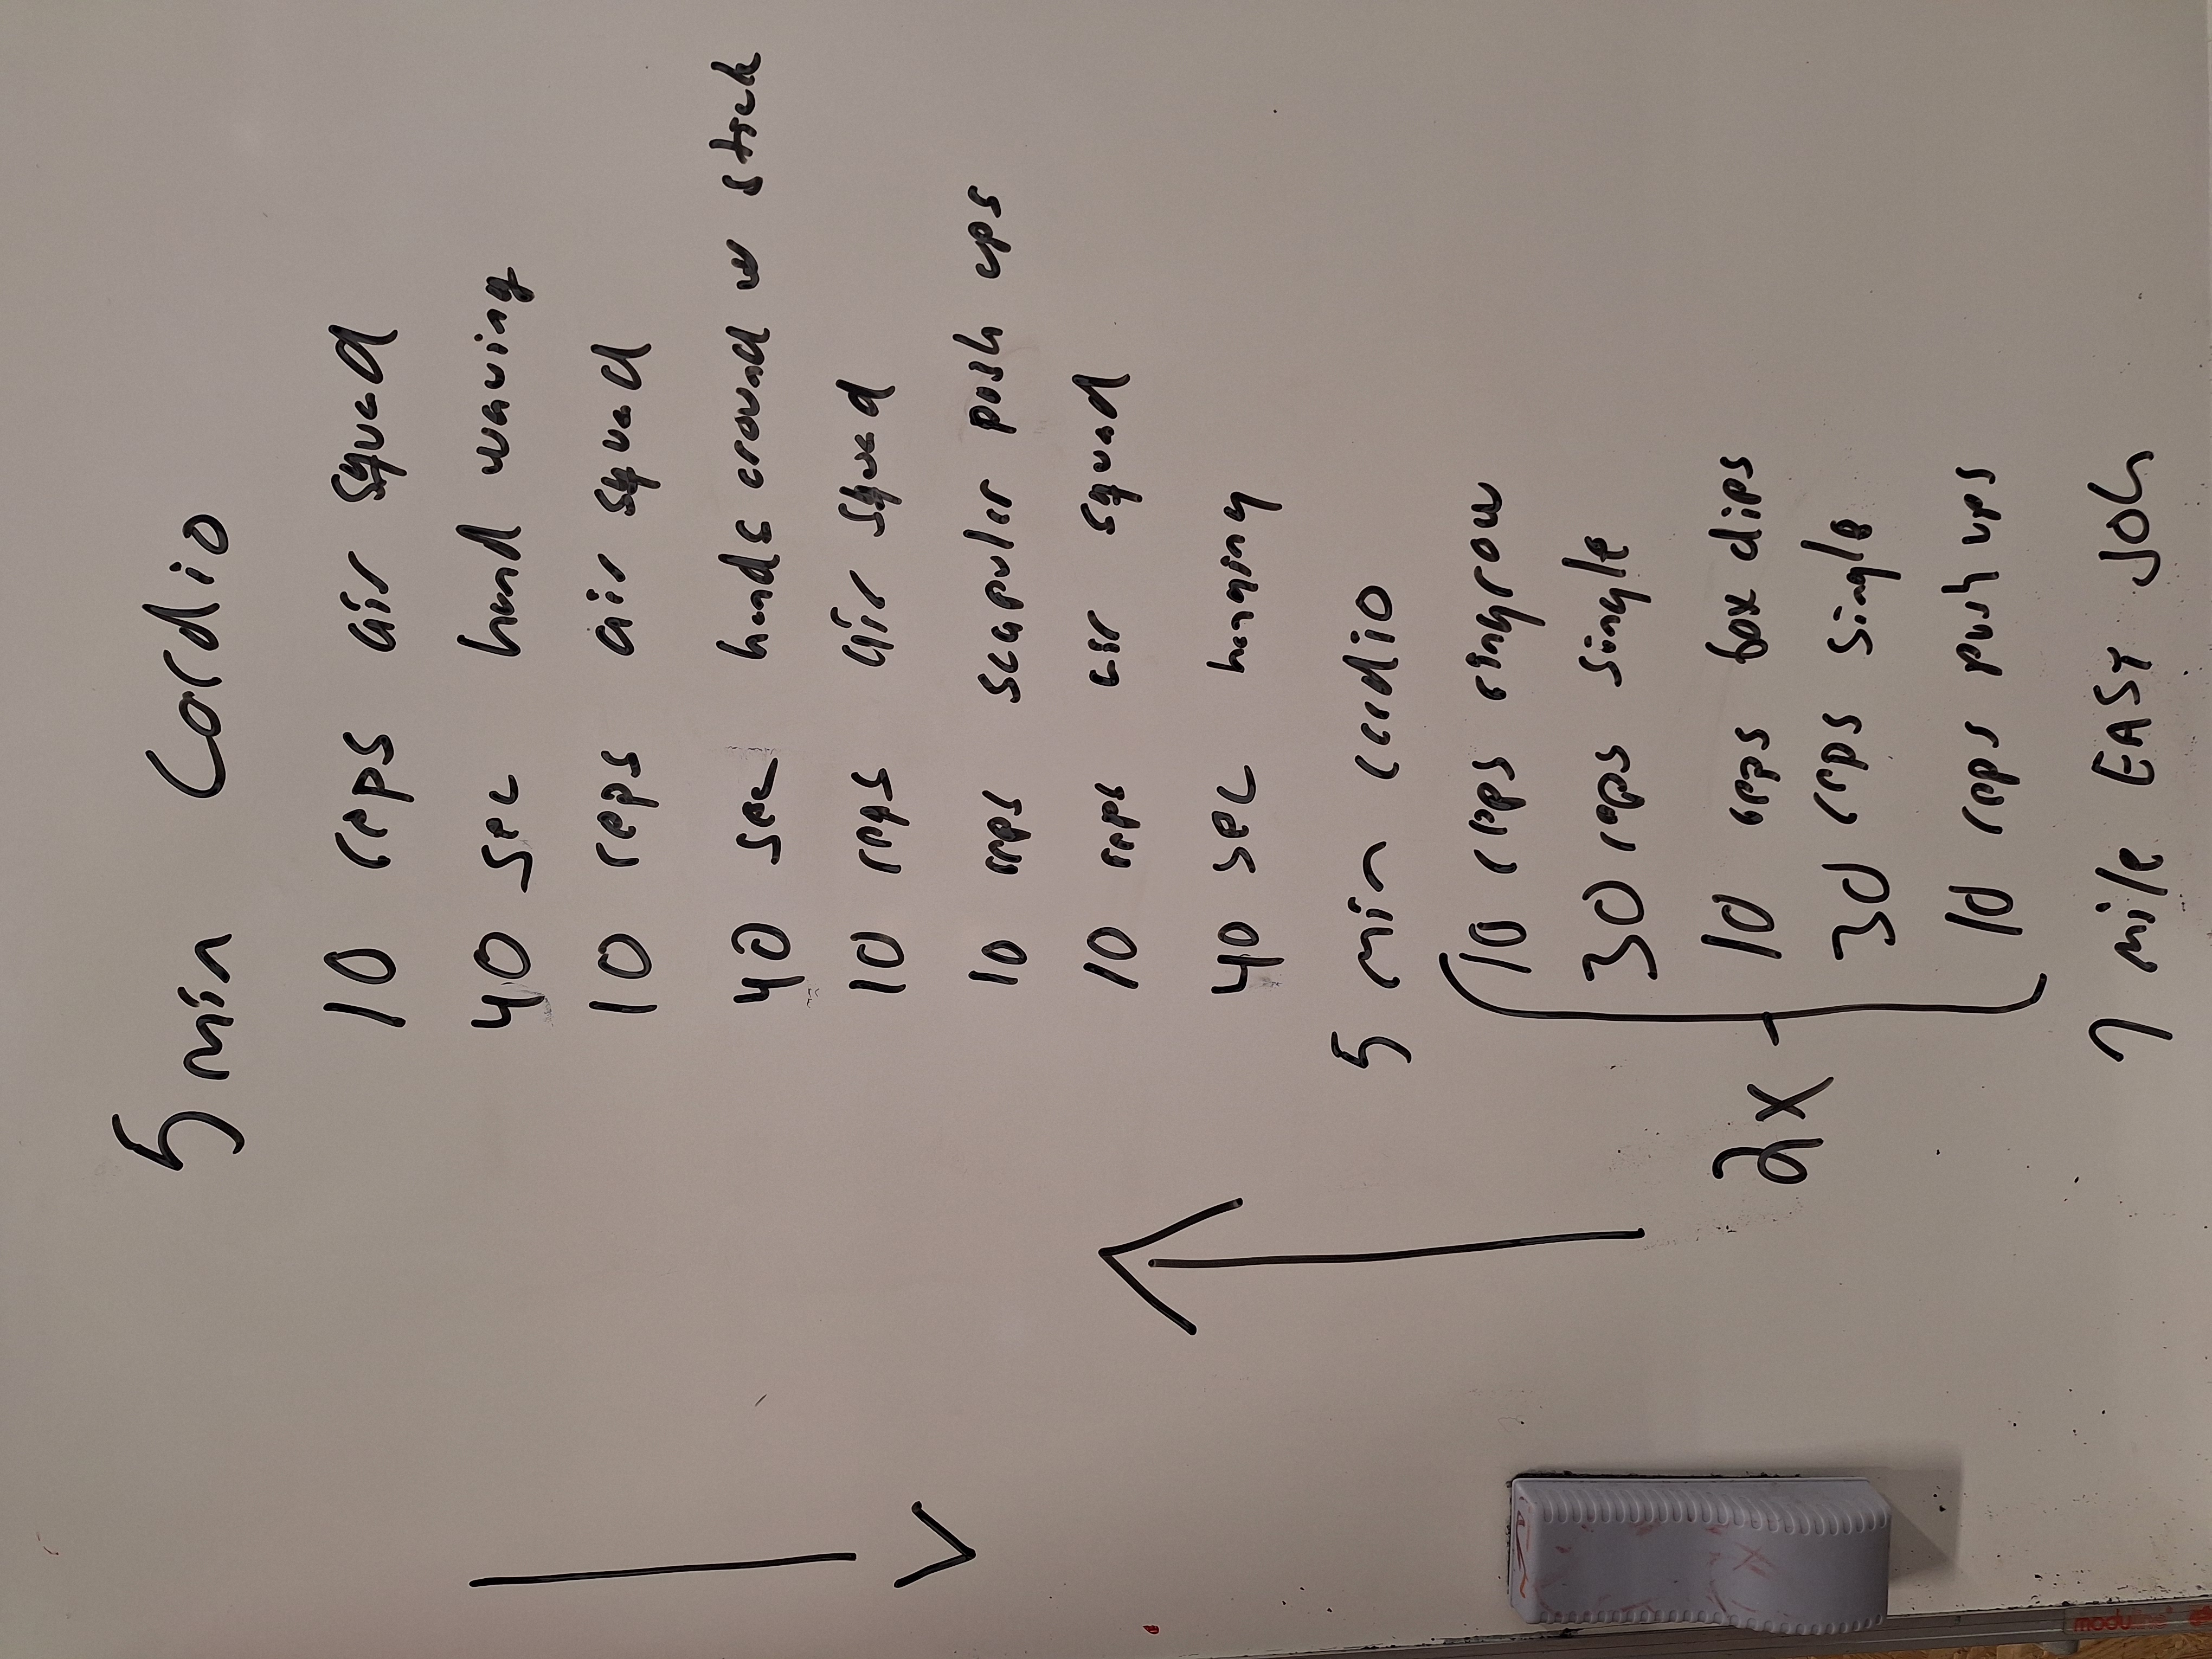 5 min Cardio
10 reps air squad
40 sec hand waving
10 reps air squad
40 sec hands around w stick
10 reps air squad
10 reps scapular push ups
10 reps air squad
40 sec hanging
5 min cardio
10 reps ringrow
30 reps single
2x
10 reps box dips
30 reps single
10 reps push ups
1 mile EASY JOG
moduline